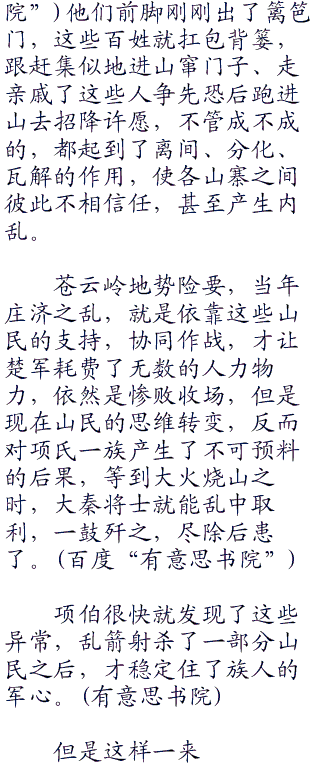 院”)他们前脚刚刚出了篱笆
门，这些百姓就扛包背篓，
跟赶集似地进山窜门子、走
亲戚了这些人争先恐后跑进
山去招降许愿，不管成不成
的，都起到了离间、分化、
瓦解的作用，使各山寨之间
彼此不相信任，甚至产生内
乱。
苍云岭地势险要，当年
庄济之乱，就是依靠这些山
民的支持，协同作战，才让
楚军耗费了无数的人力物
力，依然是惨败收场，但是
现在山民的思维转变，反而
对项氏一族产生了不可预料
的后果，等到大火烧山之
时，大秦将士就能乱中取
利，一鼓歼之，尽除后患
了。(百度“有意思书院”)
项伯很快就发现了这些
异常，乱箭射杀了一部分山
民之后，才稳定住了族人的
军心。(有意思书院)
但是这样一来